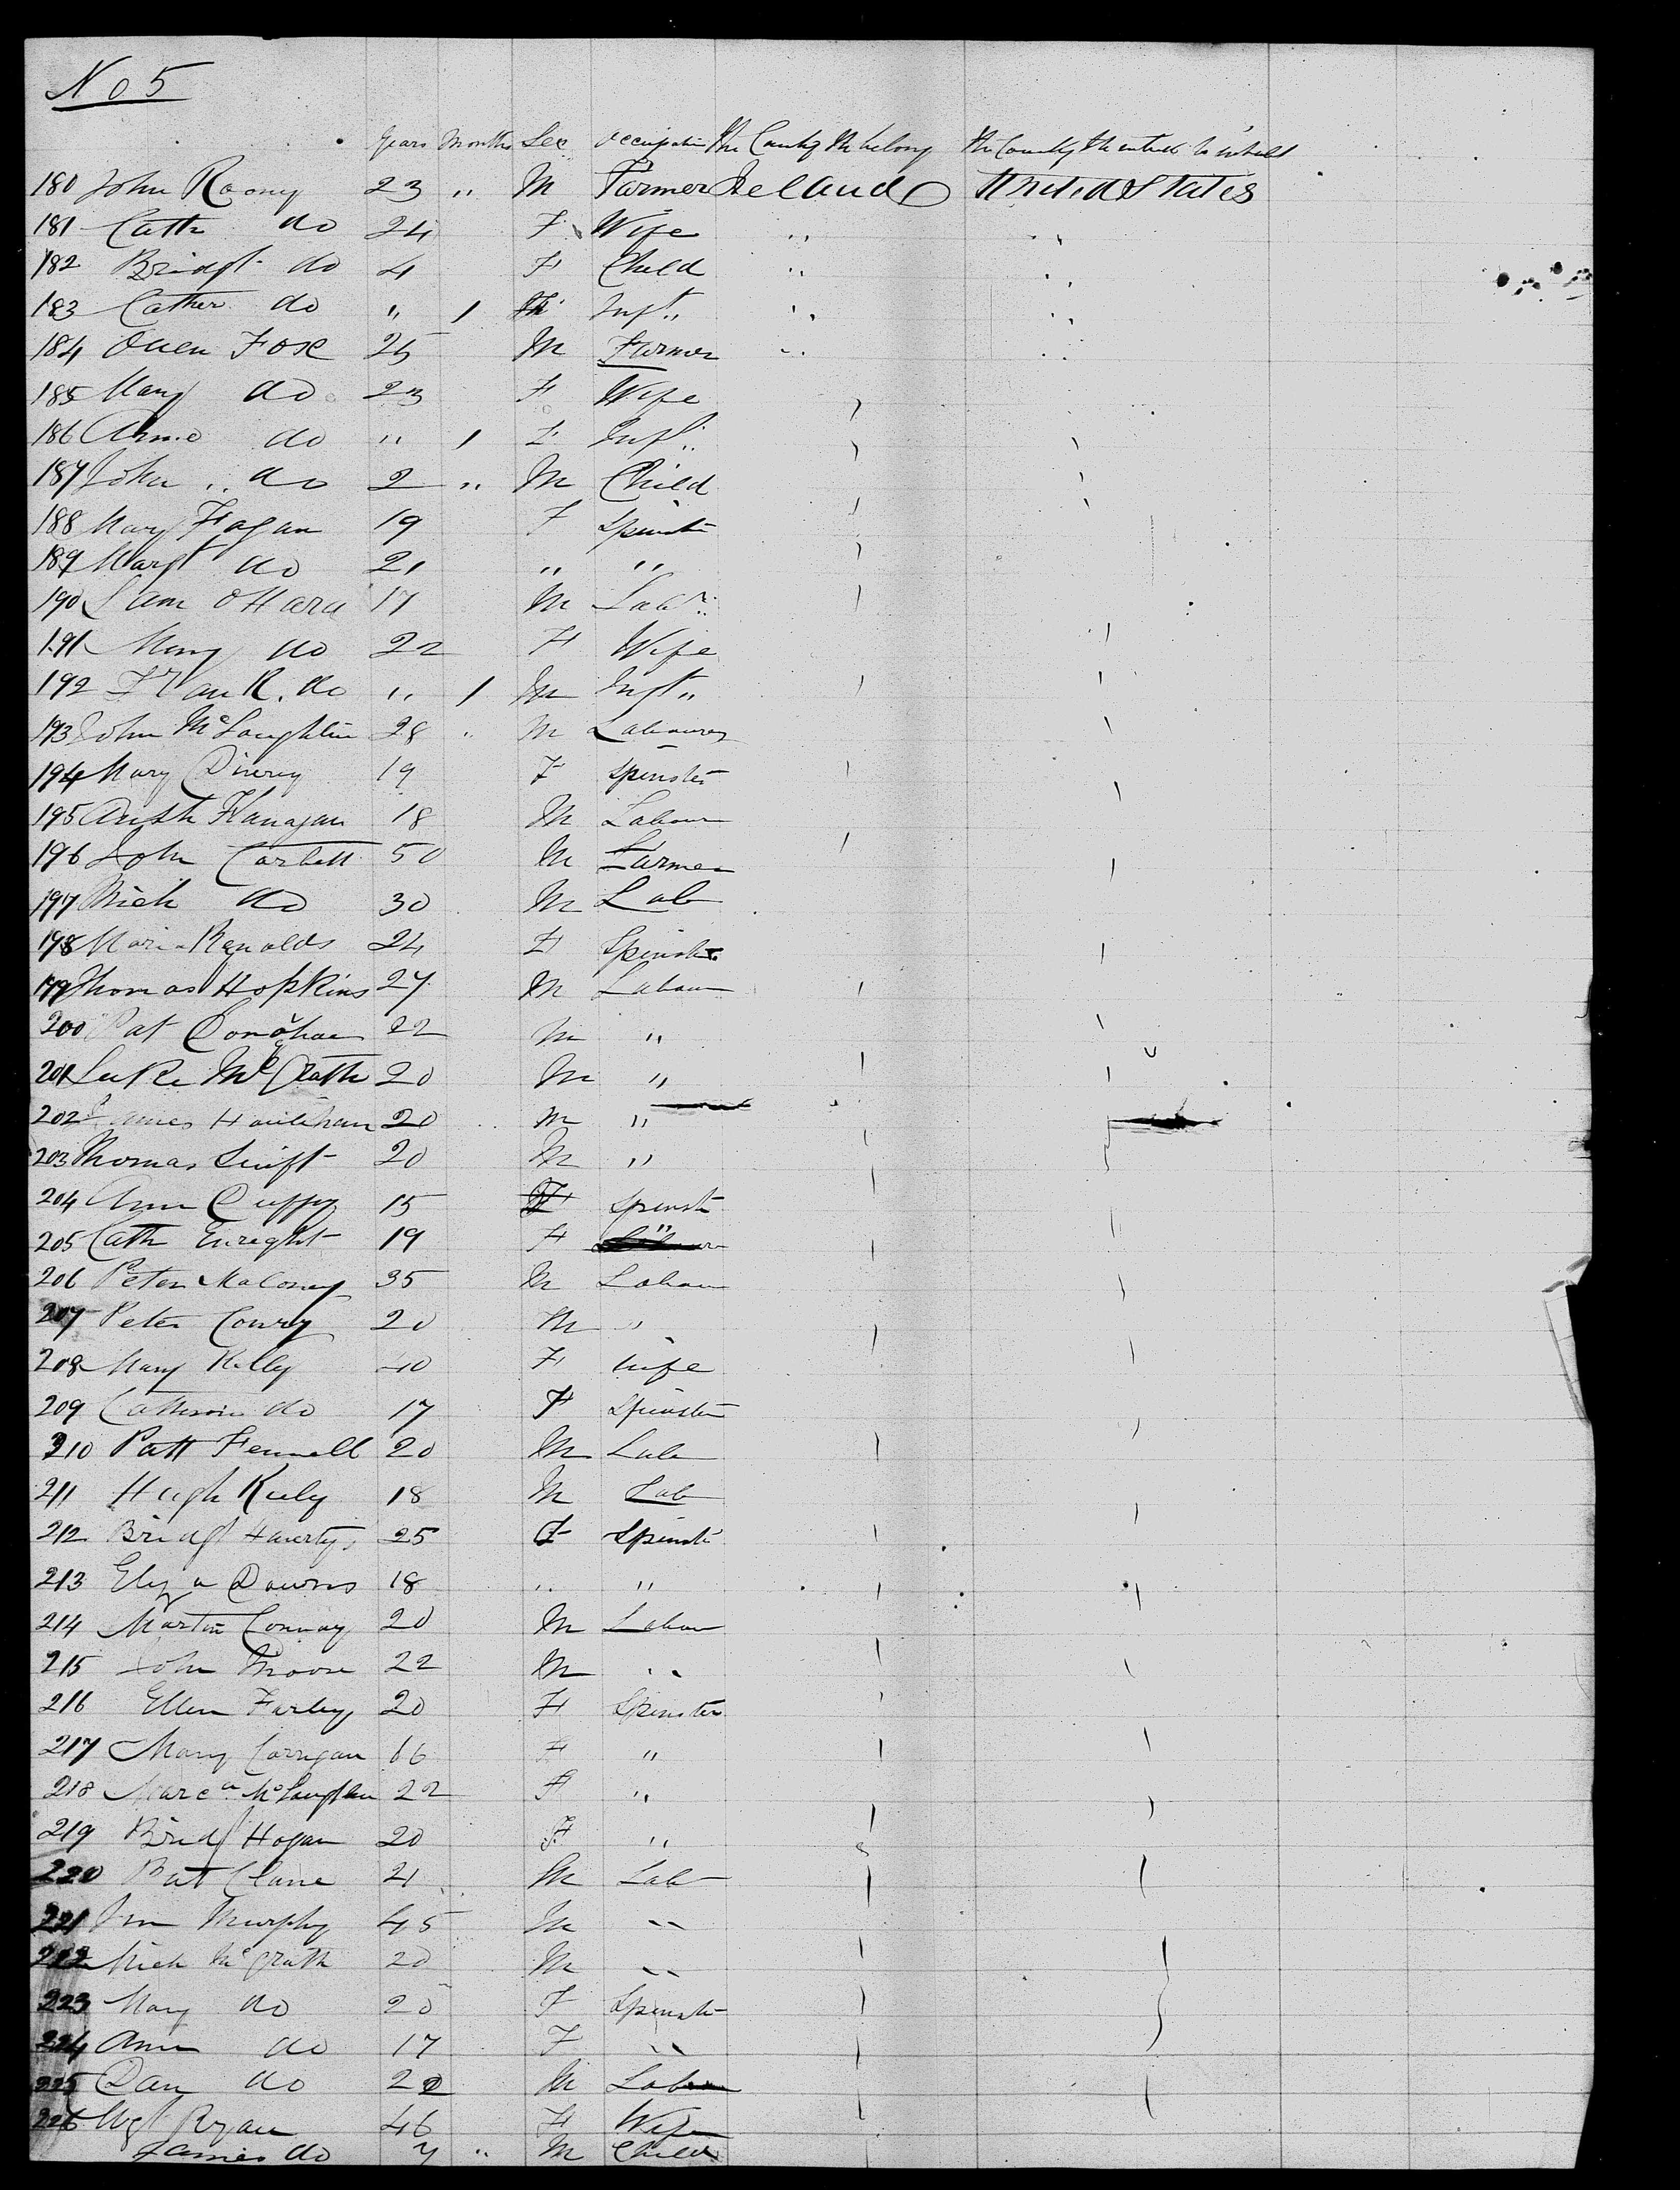 No 5
Years Months Sex Occupation The County Th belong The Country th intend to inhabit
180 John Roony 23 " M Farmer Ireland United States
181 Cath do 24 F Wife " "
182 Bridgt do 4 F Child " "
183 Cather do " 1 Inft " "
184 Owen Fox 25 M Farmer " "
185 Mary do 23 F Wife
186 Anne do " 1 F Inft
187 John do 2 " M Child
188 Mary Fagan 19 F Spinst
189 Margt do 21 " "
190 Sam O Hara 17 M Labr
191 Mary do 22 F Wife
192 Frank do " 1 M Inft "
193 John McLaughlin 28 " M Labourer
194 Mary 19 F Spinster
195 Flanagan 18 M Labour
196 John Corbett 50 M Farmer
197 Mich do 30 M Lab
198 Maria Reynolds 24 F Spinster
199 Thomas Hopkins 27 M Labour
200 Pat Donohue 22 M "
201 Luke McGrath 20 M "
202 James Houlihan 20 M "
203 Thomas Swift 20 M "
204 Ann Cuffy 15 F Spinst
205 Cath Enright 19 F "
206 Peter Malony 35 M Labour
207 Peter Conry 20 M "
208 Mary Kelly 40 F Wife
209 Catherine do 17 F Spinster
210 Patt Fennell 20 M Lab
211 Hugh Kiely 18 M Lab
212 Bridgt Haverty 25 F Spinst
213 Eliza Downs 18 " "
214 Martin Conway 20 M Labour
215 John Moore 22 M "
216 Ellen Farley 20 F Spinster
217 Mary Corrigan 16 F "
218 McLaughlin 22 F "
219 Bridgt Hogan 20 F "
220 Pat Clane 21 M Lab
221 Murphy 45 M "
222 Mich McGrath 20 M "
223 Mary do 20 F Spinst
224 Ann do 17 F "
225 Dan do 22 M Labour
226 Mgt Ryan 46 F Wife
James do 7 " M Child